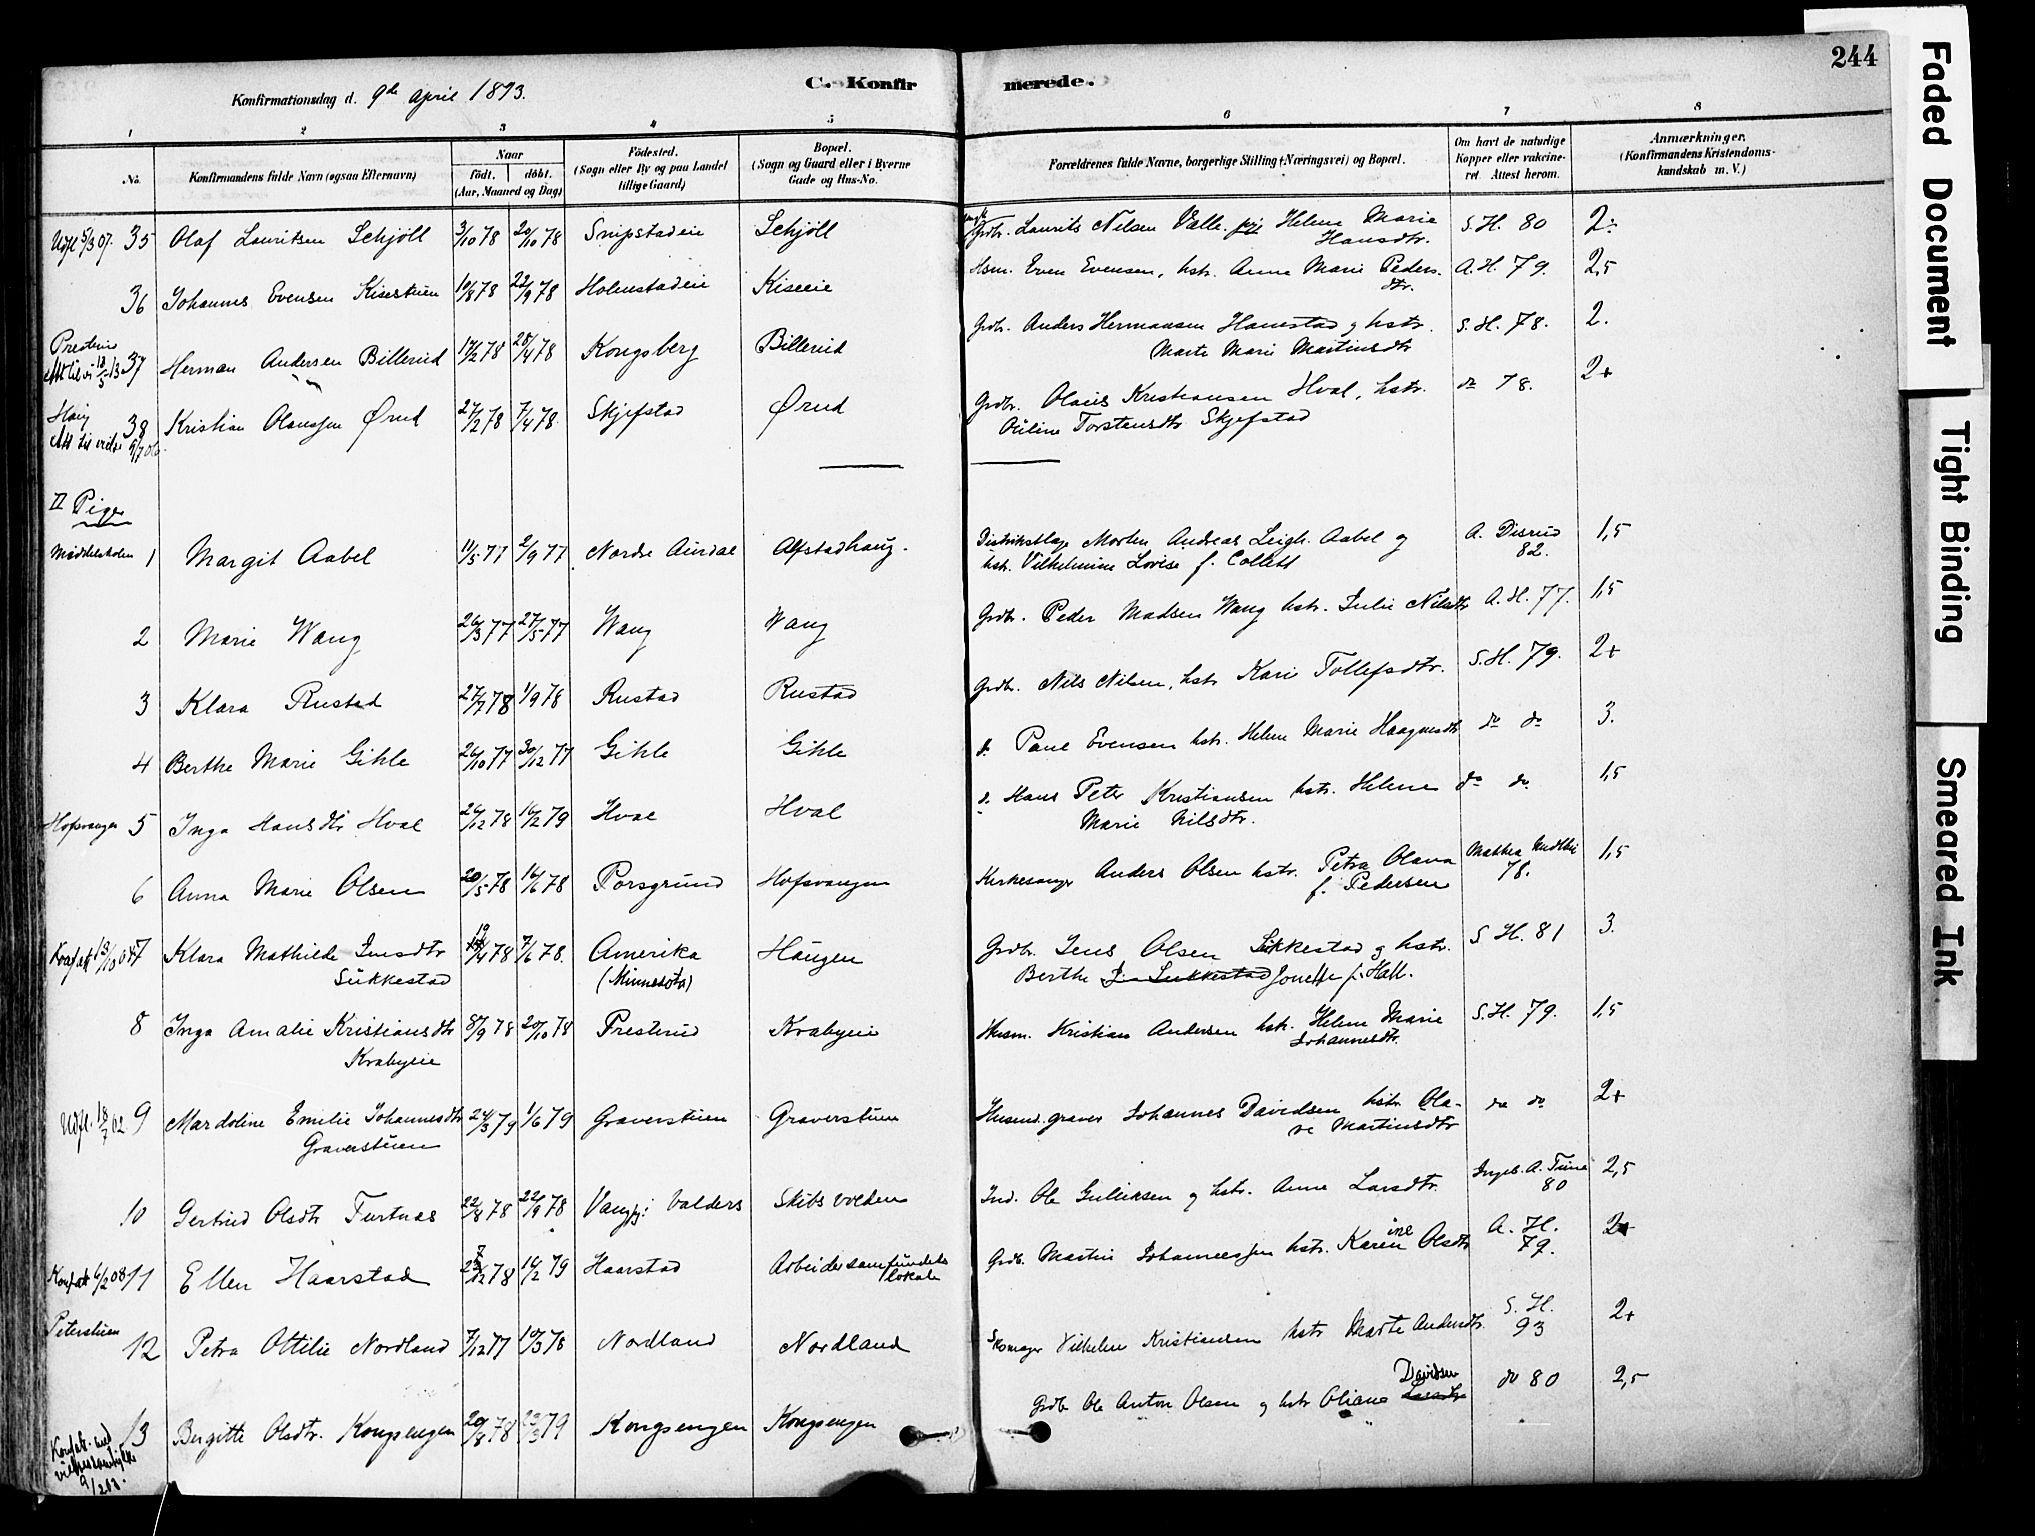 244
C. Konfirmerede.
Konfirmationsdag d. 9de April 1893.
1 2 3 4 5 6 7 8
No. Konfirmandens fulde Navn (ogsaa Efternavn) Naar født. døbt. (Aar, Maaned og Dag) Fødested. (Sogn eller By og paa Landet tillige Gaard) Bopæl. (Sogn og Gaard eller i Byerne Gade og Hus-No. Forældrenes fulde Navne, borgerlige Stilling (Næringsvei) og Bopæl. Om havt de naturlige Kopper eller vakcineret. Attest herom. Anmærkninger. (Konfirmandens Kristendomskundskab m. V.)
Udfl 5/3 07. 35 Olaf Lauritsen Schjöll 3/10 78 20/10 78 Snipstadeie Schjöll Grdbr. Laurits Nilsen Valle. Helene Marie Hansdtr. S. H. 80 2÷
36 Johannes Evensen Kisestuen 10/8 78 22/9 78 Holmstadeie Kiseeie Hsm. Even Evensen, hstr. Anne Marie Pedersdtr. A. H. 79. 2,5
37 Herman Andersen Billerud 17/2 78 28/4 78 Kongsberg Billerud Grdbr. Anders Hermansen Hanestad og hstr. Marte Marie Martinsdtr S. H. 78. 2.
38 Kristian Olaussen Ørud 27/2 78 7/4 78. Skjefstad Ørud Grdbr. Olaus Kristiansen Hval, hstr. Oline Torstensdtr Skjefstad do 78. 2+
II Piger
Middelskolen 1 Margit Aabel 11/5 77 2/9 77 Nordre Aurdal Alfstadhaug. Distriktslæge Morten Andreas Leigh. Aabel og hstr. Vilhelmine Lovise f. Collett A. Disrud 82. 1,5
2 Marie Wang 26/3 77 27/5 77 Wang Wang Grdbr. Peder Madsen Wang hstr. Julie Nilsdtr A. H. 77. 1,5
3 Klara Rustad 27/7 78 1/9 78 Rustad Rustad Grdbr. Nils Nilsen, hstr Kari Tollefsdtr. S. H. 79. 2+
4 Berthe Marie Gihle 26/10 77 30/12 77 Gihle Gihle d. Paul Evensen hstr. Helene Marie Haagensdtr do do 3.
Hofsvangen 5 Inga Hansdtr Hval 26/12 78 16/2 79 Hval Hval d. Hans Peter Kristiansen hstr. Helene Marie Nilsdtr. do do 1,5
6 Anna Marie Olsen 20/5 78 16/6 78 Porsgrund Hofsvangen Kirkesanger Anders Olsen hstr. Petra Olava f. Pedersen Mathea 78. 1,5
7 Klara Mathilde Jensdtr Sukkestad 19/4 78 7/6 78. Amerika (Minnesota) Haugen Grdbr. Jens Olsen Sukkestad og hstr. Berthe Jonette f. Hall. S. H. 81 3.
8 Inga Amalie Kristiansdtr Krabyeie 8/9 78 20/10 78 Presterud Krabyeie Husm. Kristian Andersen hstr. Helene Marie Johannesdtr. S. H. 79. 1,5
Udfl. 18/7 02 9 Mardoline Emilie Johannesdtr Graverstuen 24/3 79 1/6 79 Graverstuen Graverstuen Husmd. graver Johannes Davidsen hstr. Olave Martinsdtr do do 2+
10 Gertrud Olsdtr Furtnes 22/8 78 22/9 78 Vang i Valders Skibsvolden Ind. Ole Gulliksen og hstr. Anne Larsdtr. Ingeb. A. 80 2,5
11 Ellen Haarstad 78 16/2 79 Haarstad Arbeidersamfundets lokale Grdb. Martin Johannessen hstr. Karenine Olsdtr A. H. 79. 2+
Peterstuen 12 Petra Ottilie Nordland 7/12 77 10/3 78 Nordland Nordland Skomager Vilhelm Kristiansen hstr Marte Andersdtr. S. H. 93 2+
13 Bergitte Olsdtr. Kongsengen 20/8 78 23/3 79 Kongsengen Kongsengen Grdb Ole Anton Olsen og hstr Oliane Davidsen do 80 2,5
Faded Document
Tight Binding
Smeared Ink